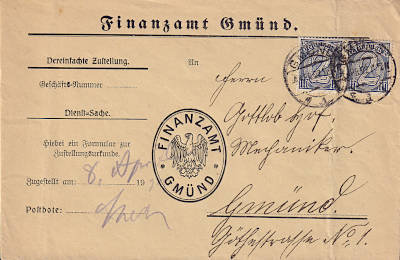 Finanzamt Gmünd.
Vereinfachte Zustellung.
Geschäfts-Nummer
Dienst-Sache.
Hiebei ein Formular zur
Zustellungsurkunde.
Zugestellt am: 8. April 19
Postbote:
An
Herrn
Gottlob Hof.
Mechaniker.
Gmünd.
Göthestrasse No. 1.
FINANZAMT
GMÜND